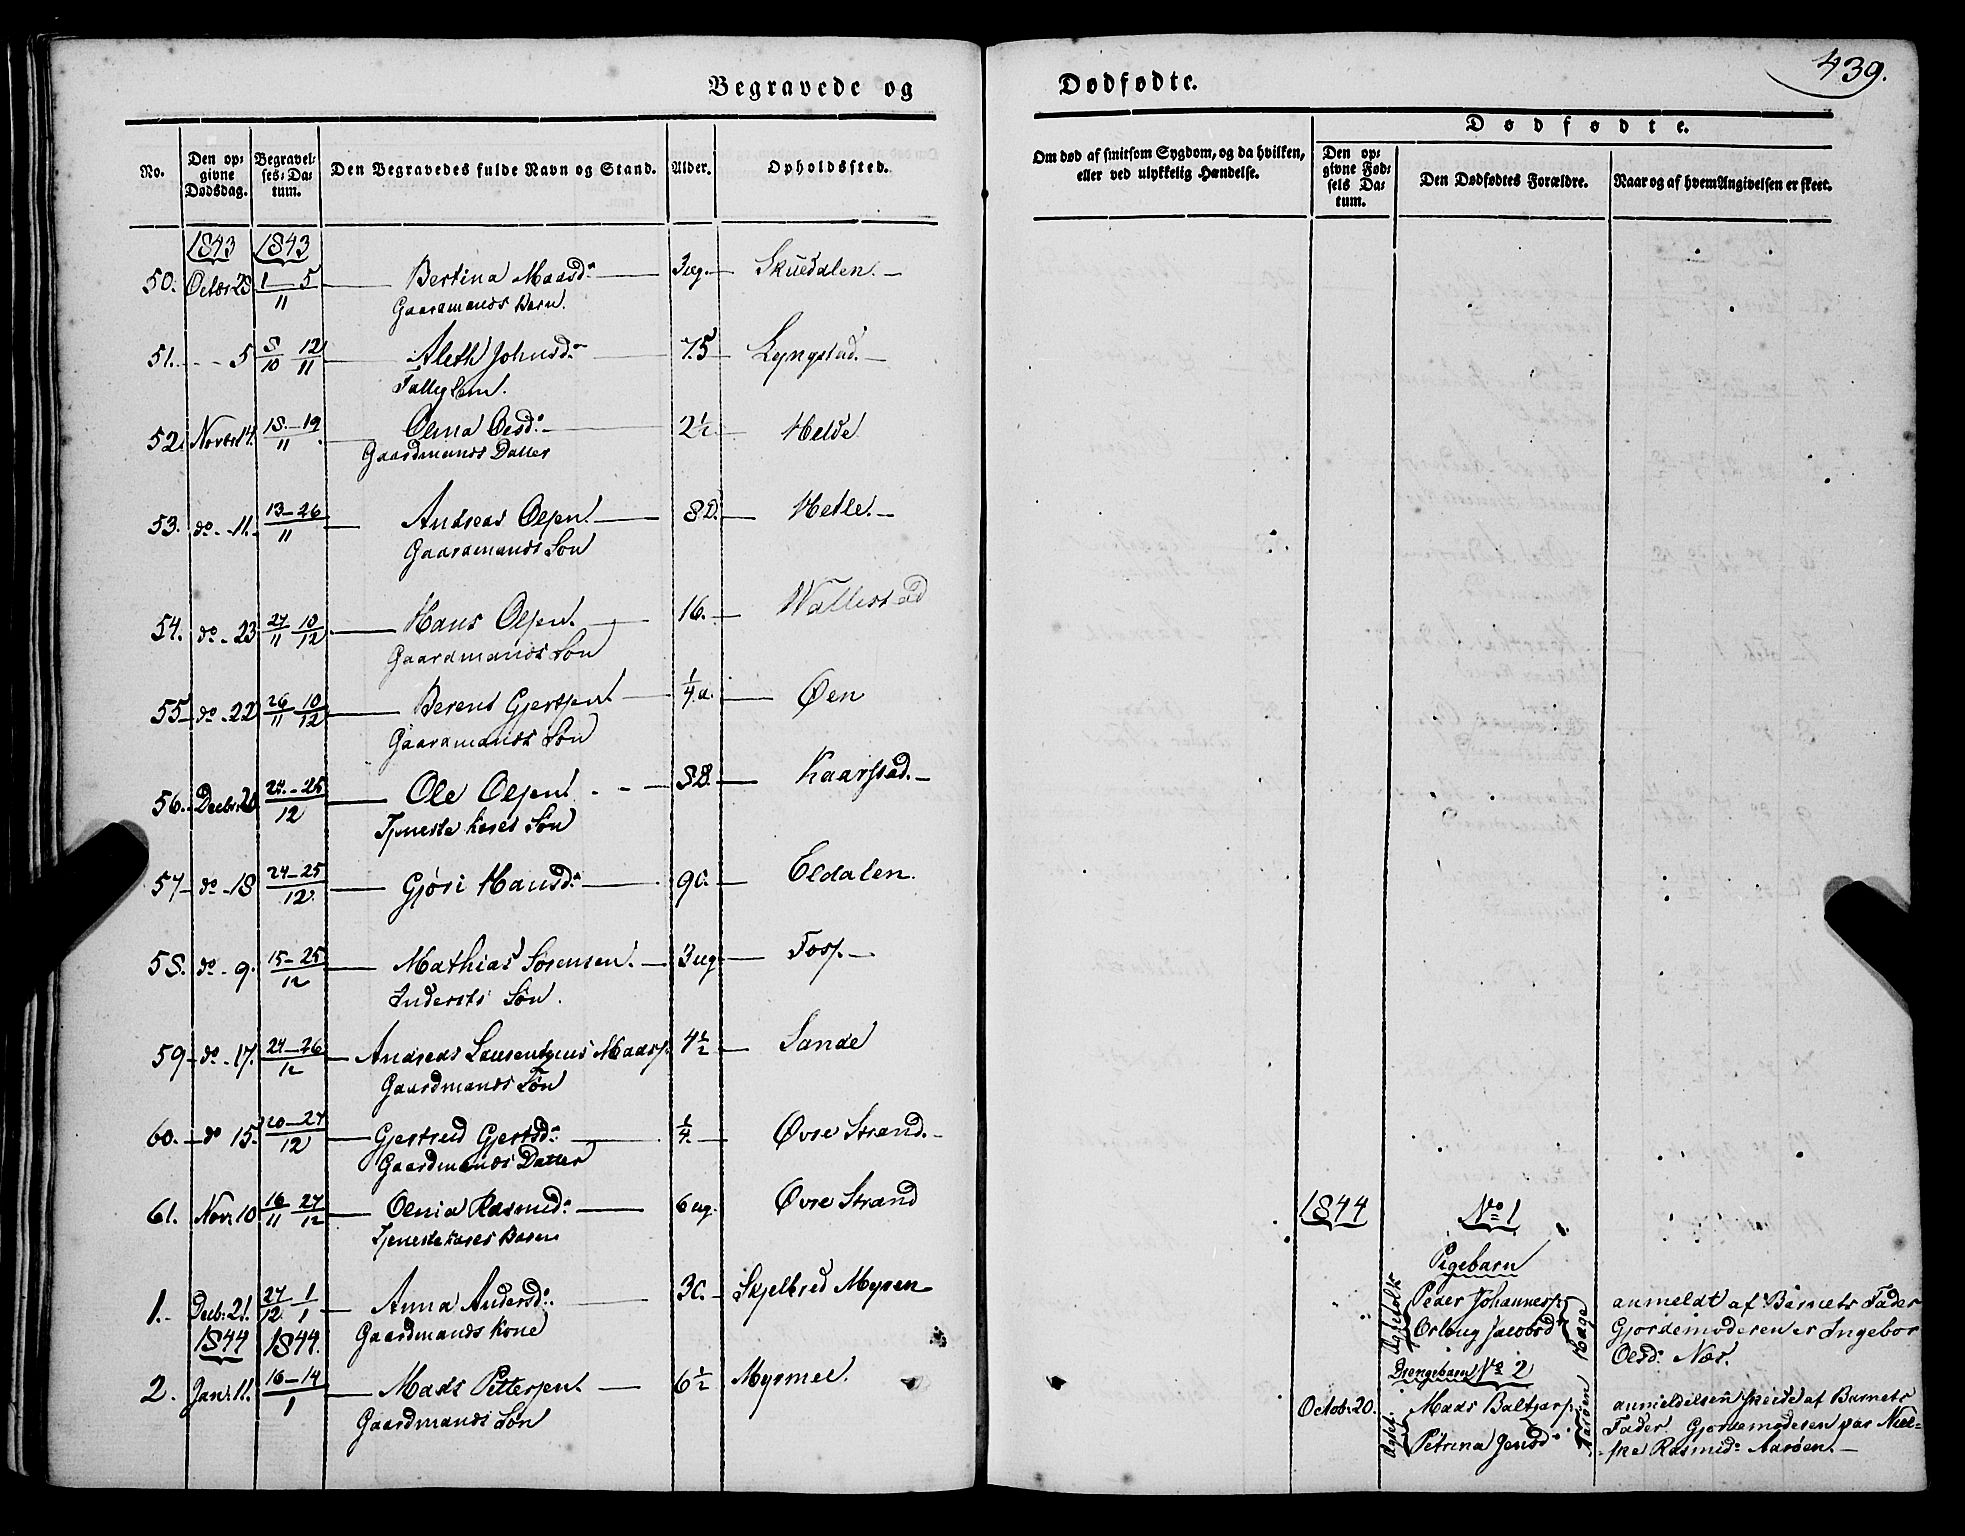 439.
Begravede og Dødfødte.
Dødfødte.
No.
Den opgivne Dødsdag.
Begravelses-Datum.
Den Begravedes fulde Navn og Stand.
Alder.
Opholdssted.
Om død af smitsom Sygdom, og da hvilken, eller ved ulykkelig Hændelse.
Den opgivne Fødsels Datum.
Den Dødfødtes Forældre.
Naar og af hvem Angivelsen er skeet.
1843 1843
50. Octbr 28 1–5/11 Bertina Maasd: 3ug. Skuedalen.
Gaardmands Barn.
51. - - 5 8/10 12/11 Aleth Johnsd: 75 Lyngstad.
Fattiglem.
52. Novbr 14. 18–19/11 Olina Olsd: 2½ Helde
Gaardmands Datter
53. do - 11. 13–26/11 Andreas Olsen. 8D. Hetle.
Gaardmands Søn
54. do - 23 27/11 10/12 Hans Olsen. 16. Wallestad
Gaardmands Søn
55 do - 22 26/11 10/12 Berent Gjertsen ¼ a. Øen
Gaardmands Søn
56. Decbr 20 24–25/12 Ole Olsen 8D. Kaarstad.
Tjeneste Karls Søn
57 do - 18 24–25/12 Gjøri Hansd: 90. Eldalen.
58. do - 9. 15–25/12 Mathias Sørensen. 3ug Foss.
Indersts Søn.
59 do - 17. 24–26/12 Andreas Laurentzius Maads. 4½ Sande
Gaardmands Søn
60. do 15. 20–27/12 Gjertrud Gjertsd: ¼. Øvre Strand.
Gaardmands Datter
61. Nov: 10. 16/11 27/12 Olinia Rasmusd: 6ug. Øvre Strand
Tjenestekarls Barn
1. Decb: 21. 27/12 1/1 Anna Andersd: 30. Skjelbred Myren
1844 1844. Gaardmands Kone
2. Jan: 11. 16–14/1 Mads Pettersen. 6½ Myrmel.
Gaardmands Søn
1844 No 1
Pigebarn
Peder Johanness. Hage
Jacobsd
anmeldt af Barnets Fader
Gjordemoderen er Ingebor
Olsd: Næs.
Drengebarn No 2
Octob: 20. Maas Baltzars. Aarøen
Petrina Jensd
anmeldelsen skeede af Barnets
Fader Gjordemoderen var Niel-
ske Rasmd: Aarøen.